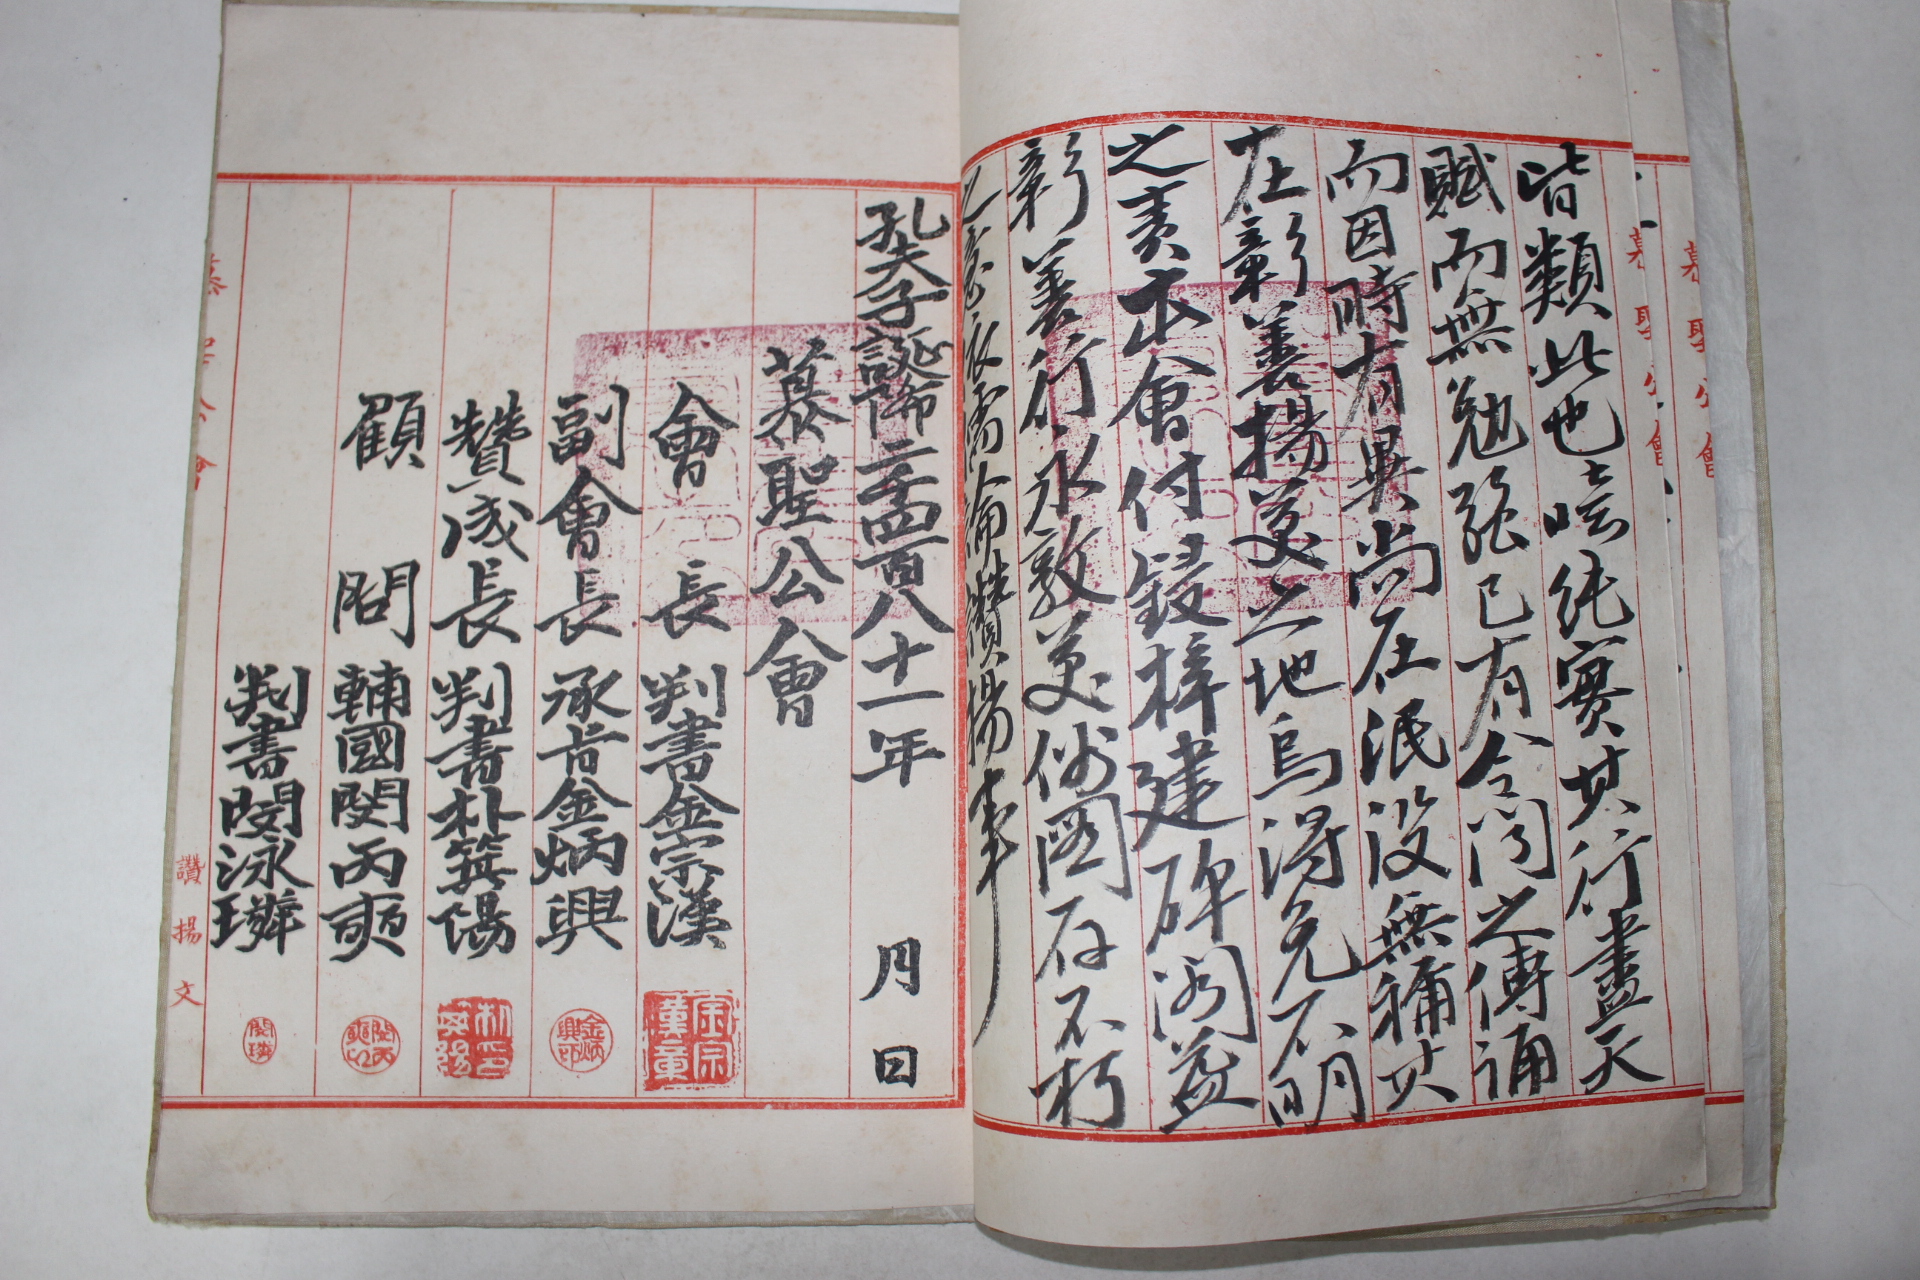 皆類此也噫純實其行盡天
賦而無勉强已有令聞之傳誦
而因時有異尚在泯沒無稱其
在彰善揚美之地烏得免不明
之責本會付鋟梓建碑閣益
彰善行永敦美俗圖存不朽
之意依儒論讚揚事
孔夫子誕降二千四百八十一年 月 日
慕聖公會
會長 判書金宗漢
副會長 承旨金炳興
贊成長 判書朴箕陽
顧問 輔國閔丙奭
判書閔泳璘
慕聖公會 讚揚文